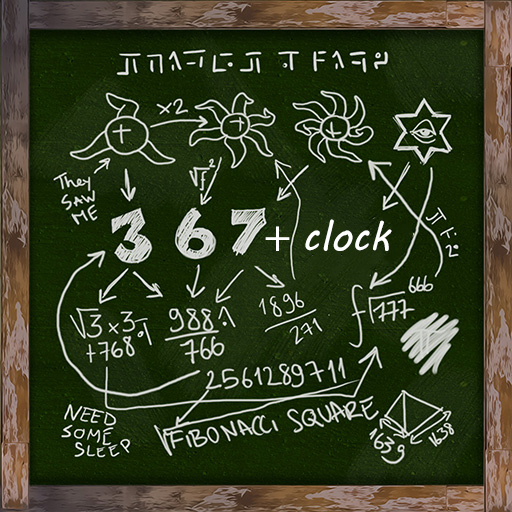 x2
They
SAW
ME
√π²
3 6 7 + clock
√3 x 3
+768
988
766
1896
271
√777 666
2561289711
NEED
SOME
SLEEP
√FIBONACCI SQUARE
1639 1638